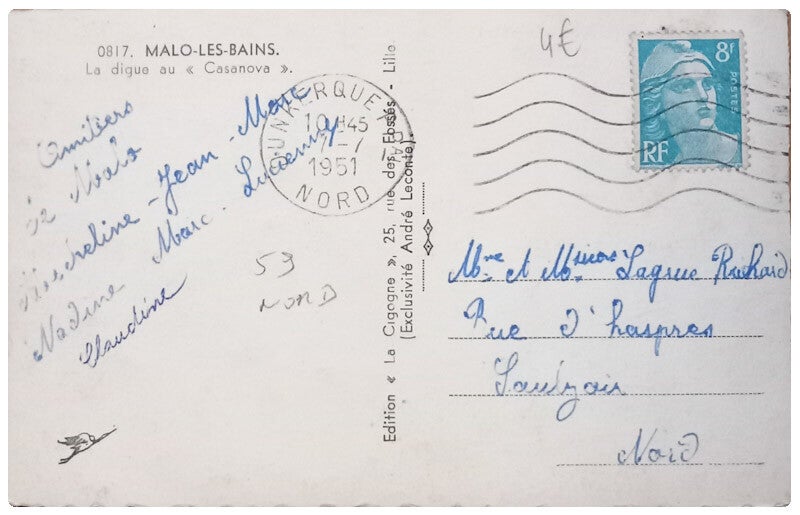 0817. MALO-LES-BAINS.
La digue au « Casanova ».
Amitiers
de Malo
Micheline - Jean-Marc
Nadine Marc. Lucienny
Claudine
53
NORD
Edition « La Cigogne », 25, rue des Fossés - Lille
(Exclusivité André Leconte).
DUNKERQUE
10H45
7-7
1951
NORD
4€
8F
POSTES
RF
Mme et Msieur Lagrue Richard
Rue d'haspres
Saulzoir
Nord